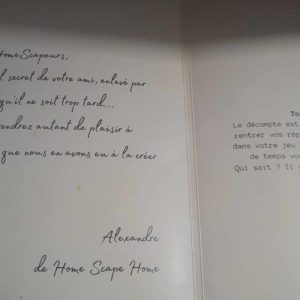 HomeScapeurs,
l secret de votre ami, enlevé par
qu'il ne soit trop tard...
rendrez autant de plaisir à
que nous en avons eu à la créer
Alexandre
de Home Scape Home
Te
Le décompte est
rentrer vos rép
dans votre jeu
de temps vo
Qui sait ? Il